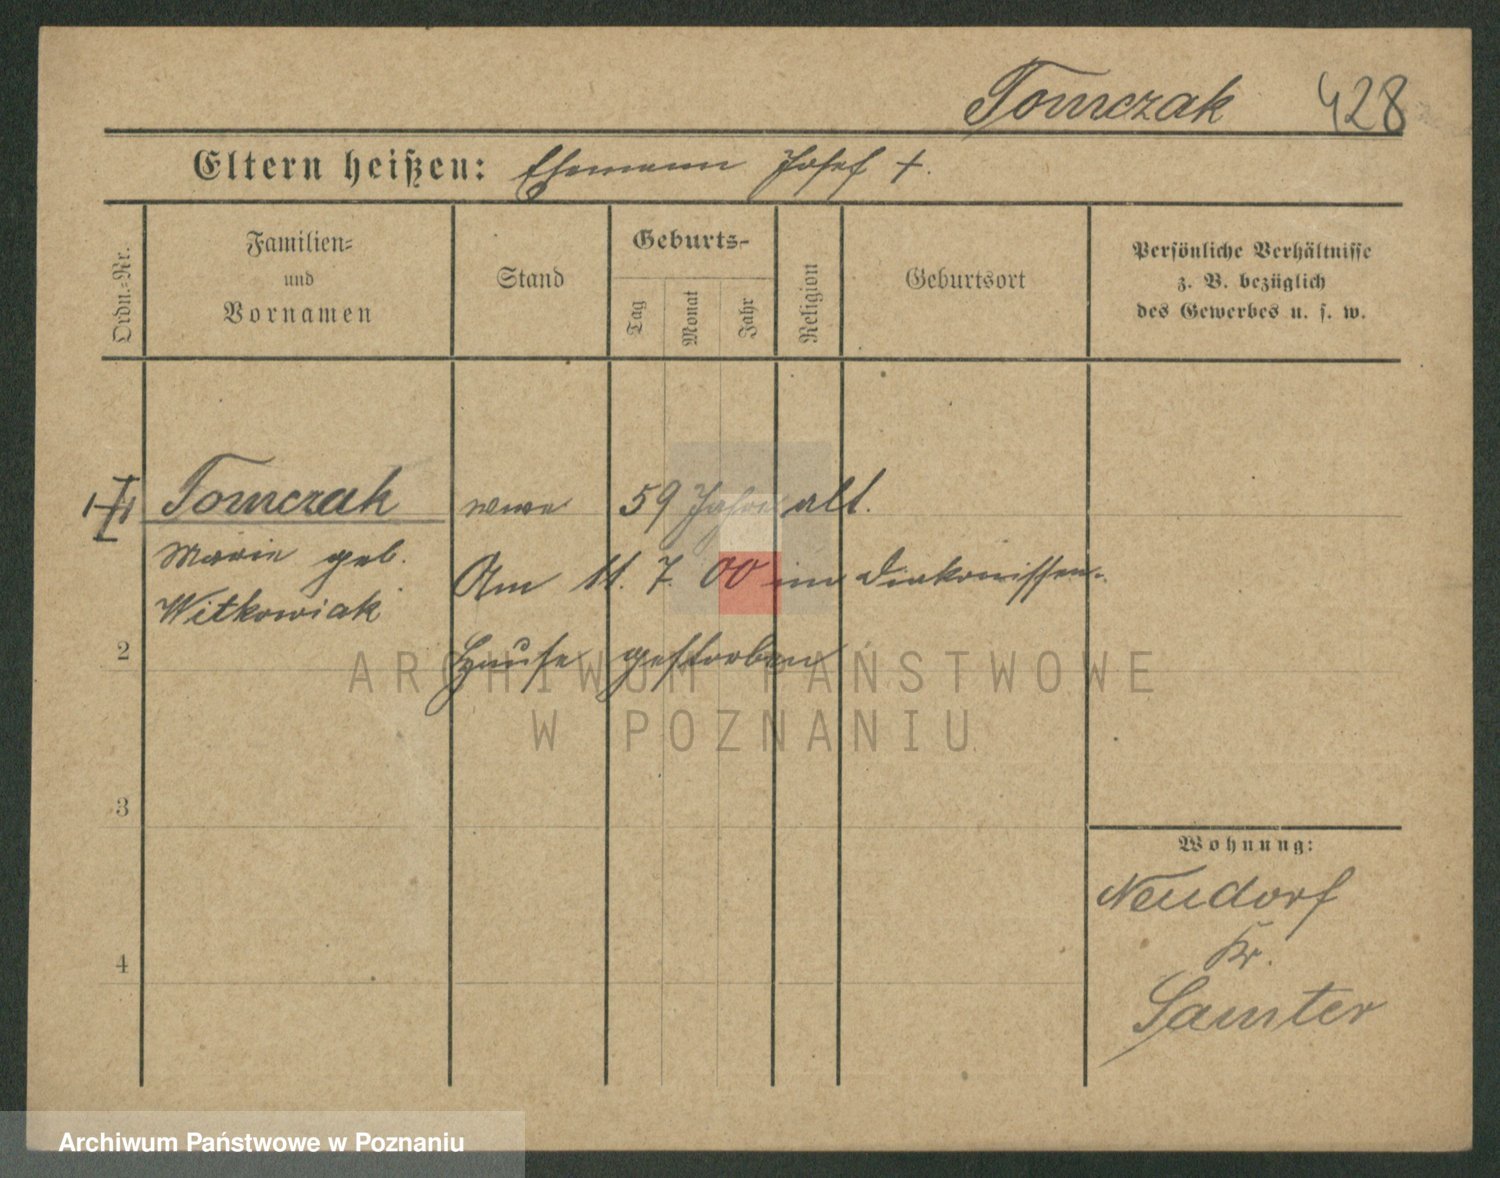 Tomczak 428
Eltern heißen: Ehemann Josef †.
Ordn.-Nr.
Familien-
und
Vornamen
Stand
Geburts-
Tag
Monat
Jahr
Religion
Geburtsort
Persönliche Verhältnisse
z. B. bezüglich
des Gewerbes u. s. w.
1 Tomczak wwe 59 Jahre alt.
Marie geb.
Witkowiak
Am 11. 7. 00 im Diakonissen-
2
Hause gestorben
ARCHIWUM PAŃSTWOWE
W POZNANIU
3
Wohnung:
Neudorf
Kr.
Samter
4
Archiwum Państwowe w Poznaniu